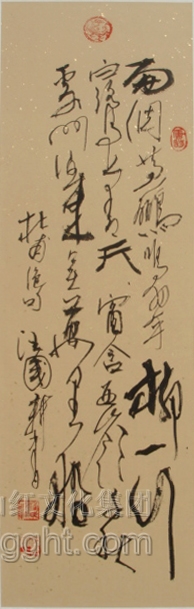 兩個黃鸝鳴翠柳一行
白鷺上青天窗含西嶺千秋
雪門泊東吳萬里船
杜甫絕句 法國
红文化集团
gght.com